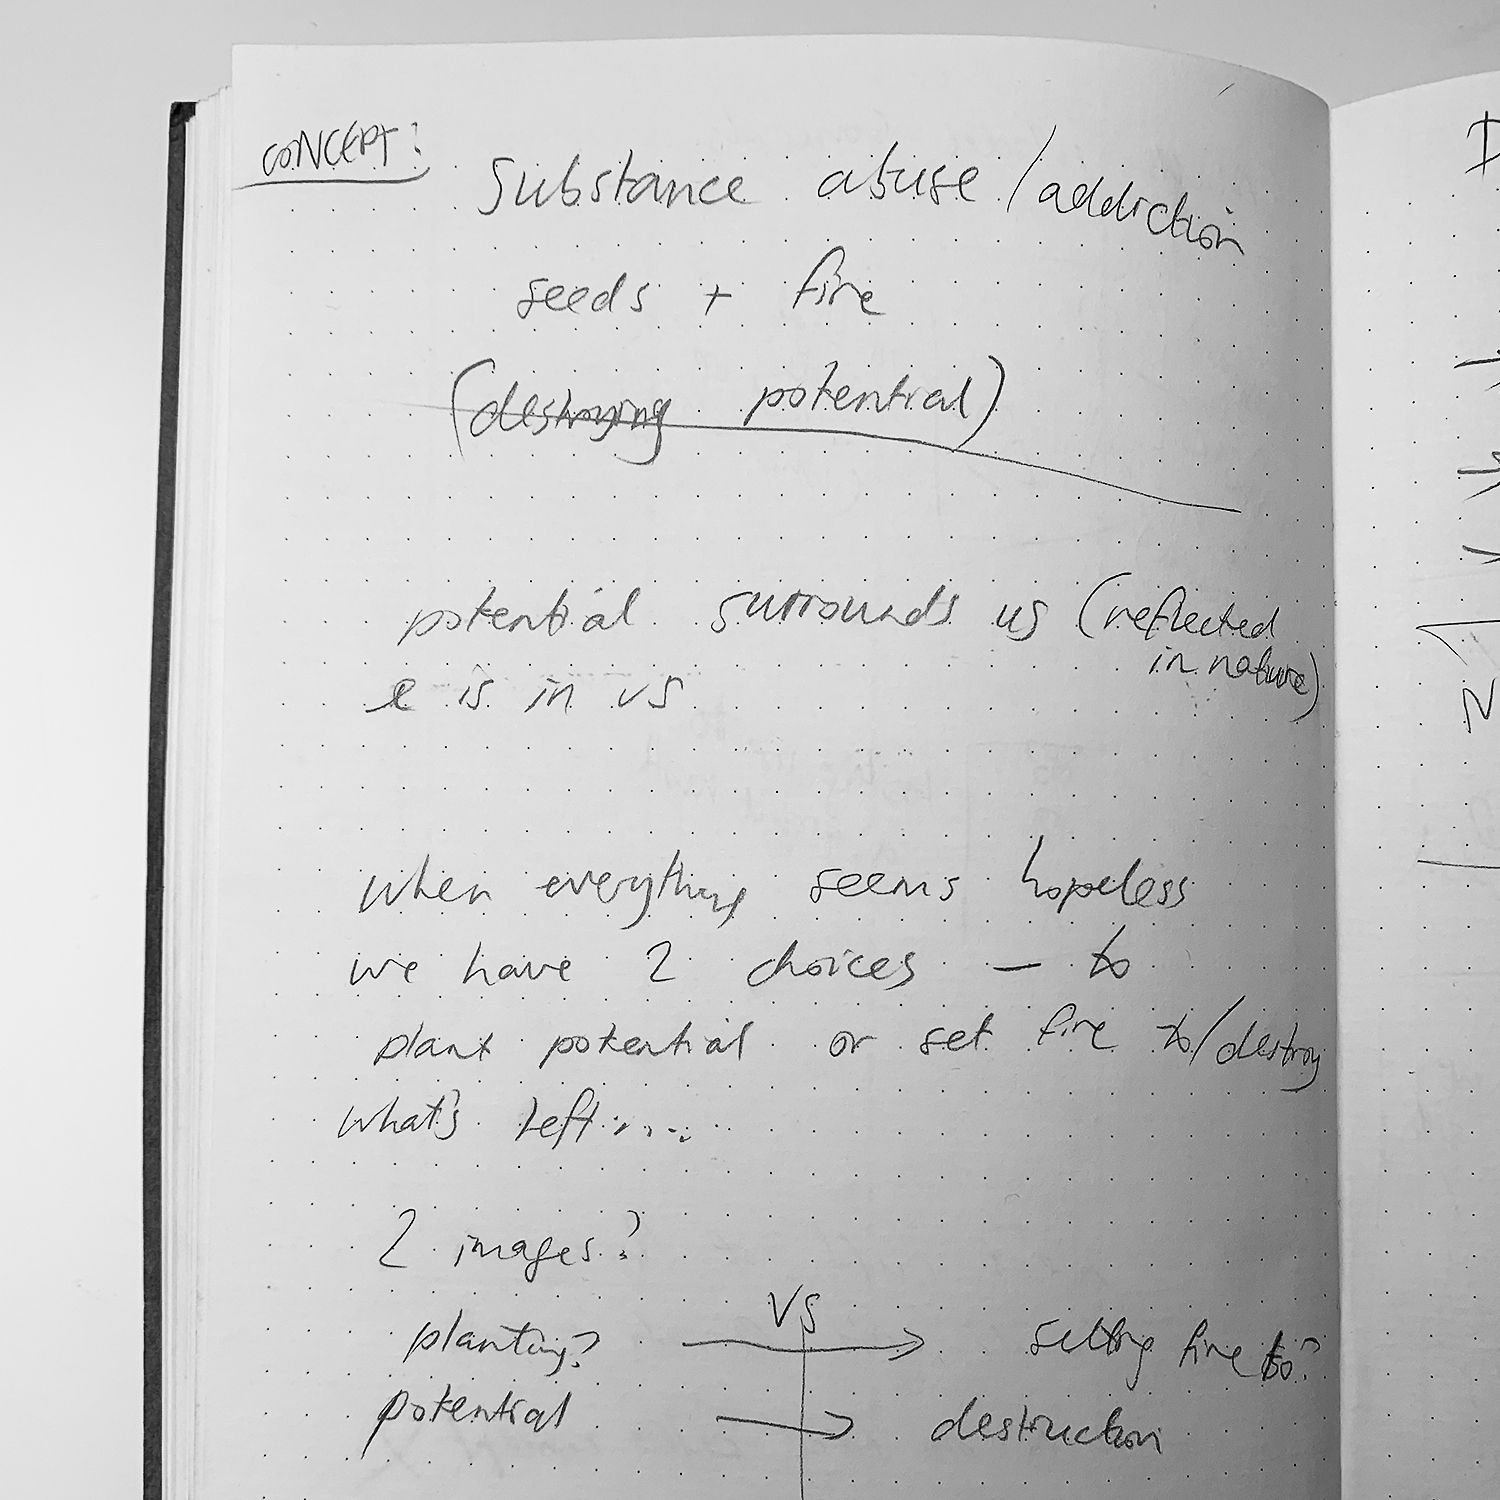 CONCEPT:
Substance abuse / addiction
seeds + fire
(destroying potential)
potential surrounds us (reflected
in nature)
& is in us
when everything seems hopeless
we have 2 choices – to
plant potential or set fire to/destroy
what's left....
2 images?
VS
planting? → setting fire to?
potential → destruction
D
N